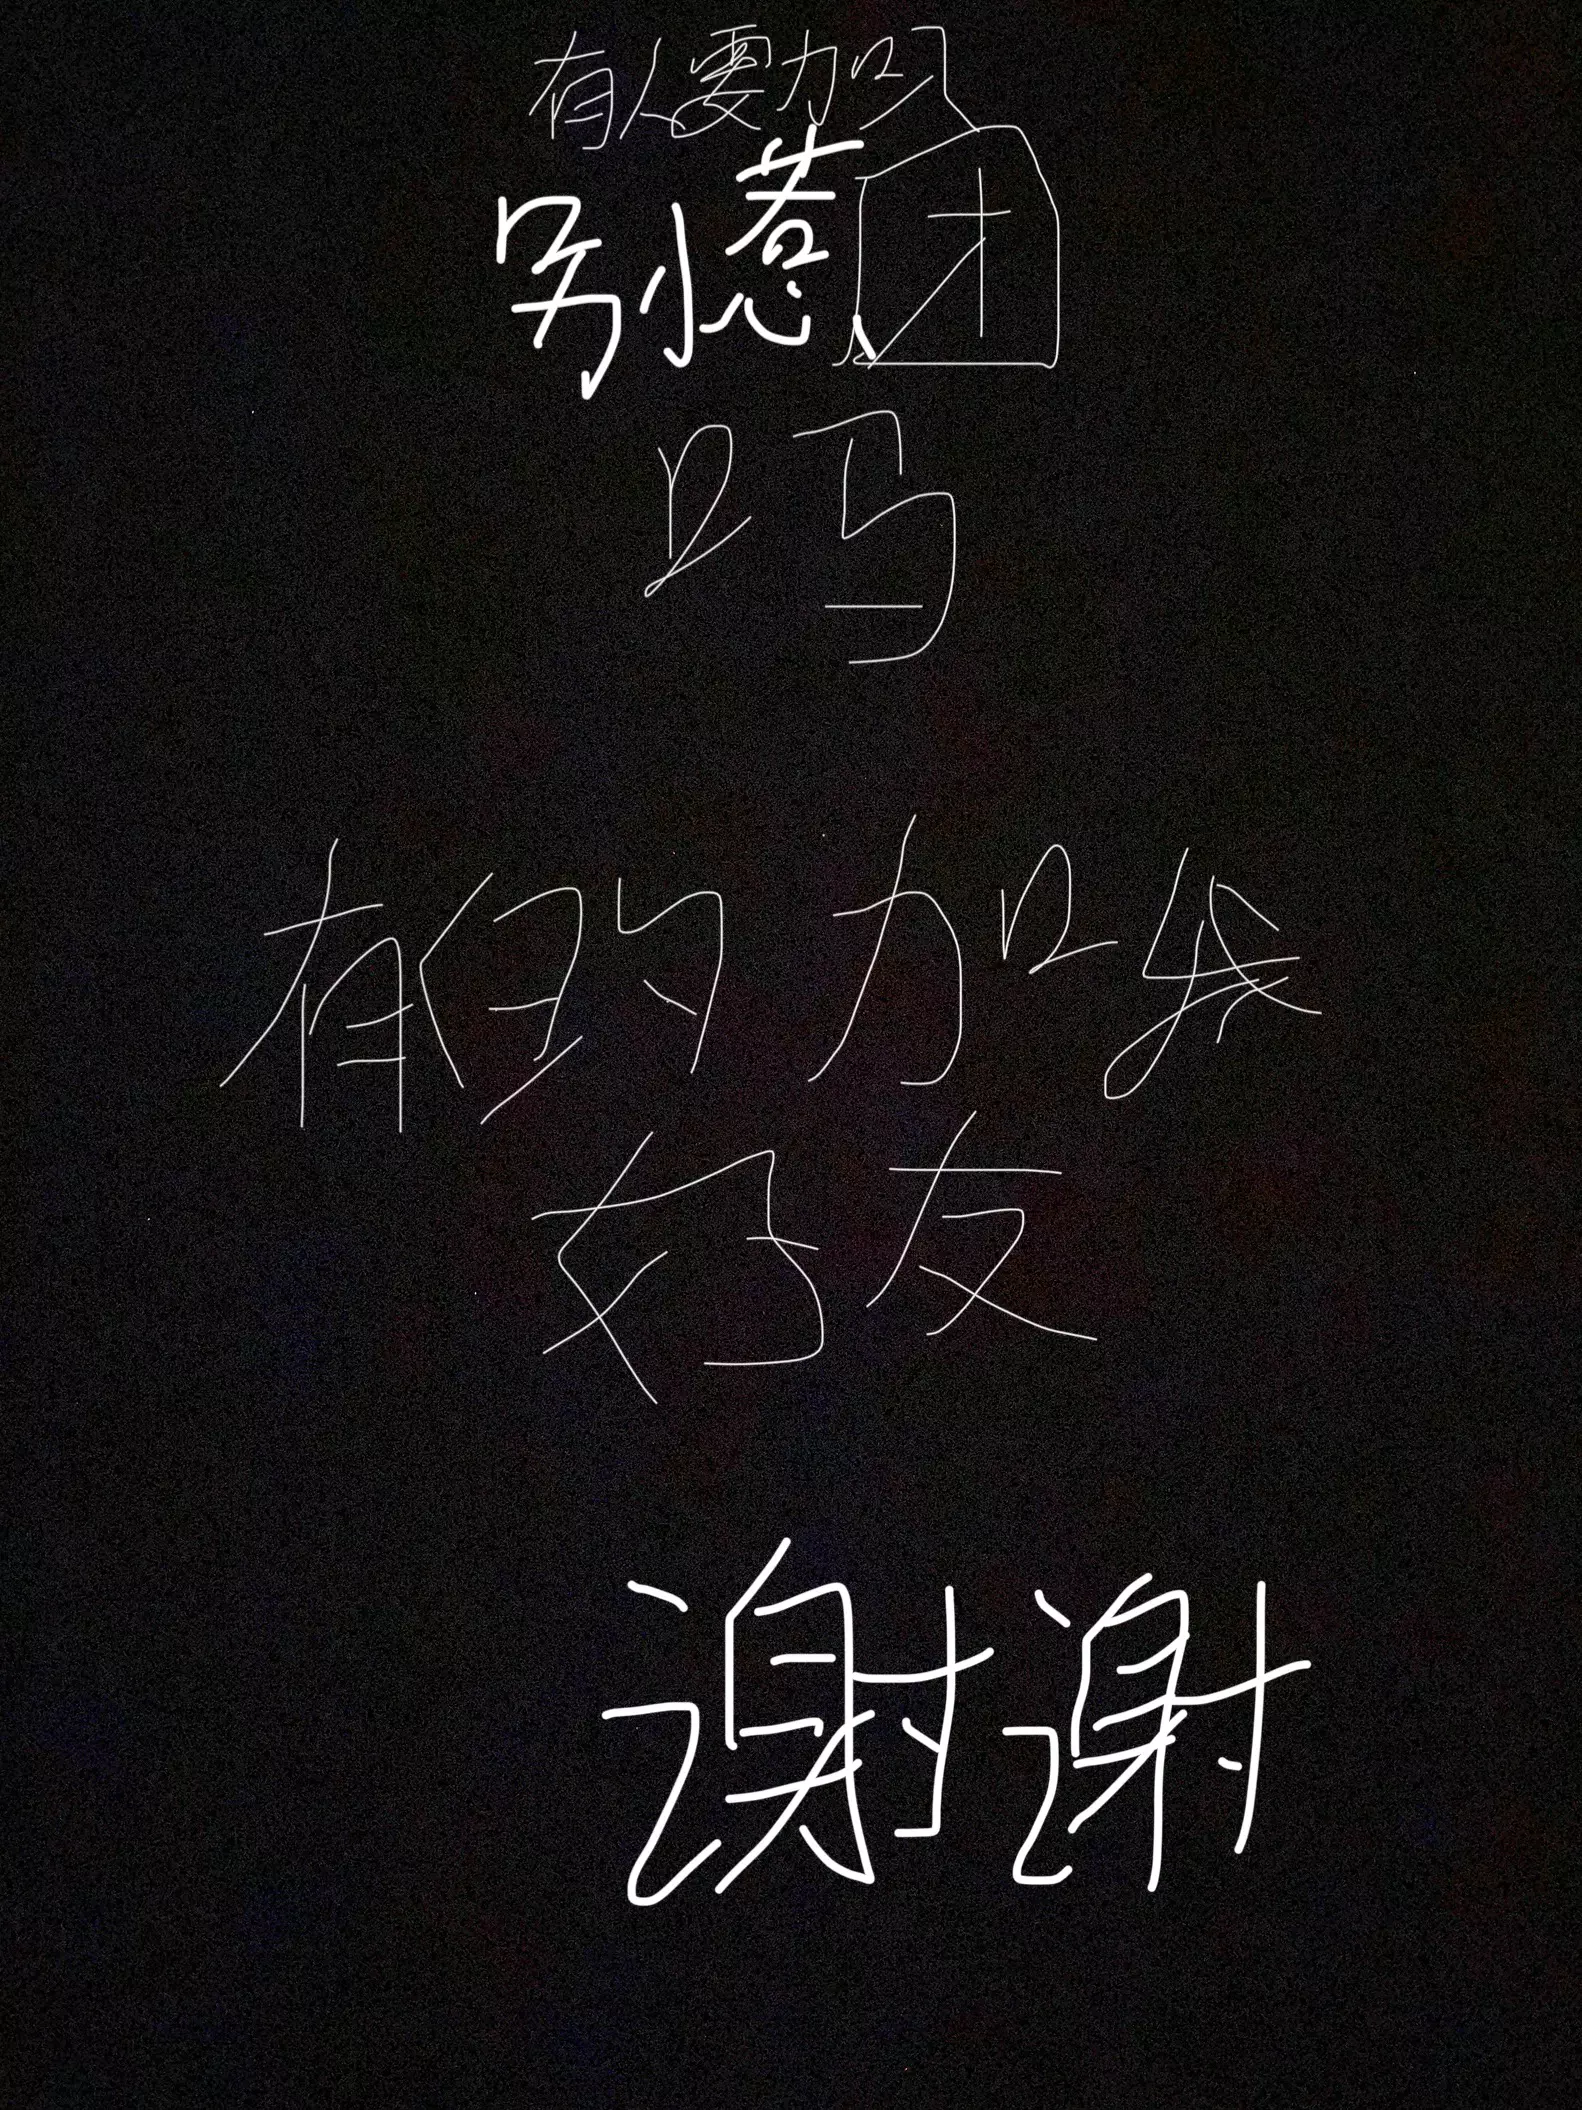 有人要加入
别惹、团
吗
有的加我
好友
谢谢